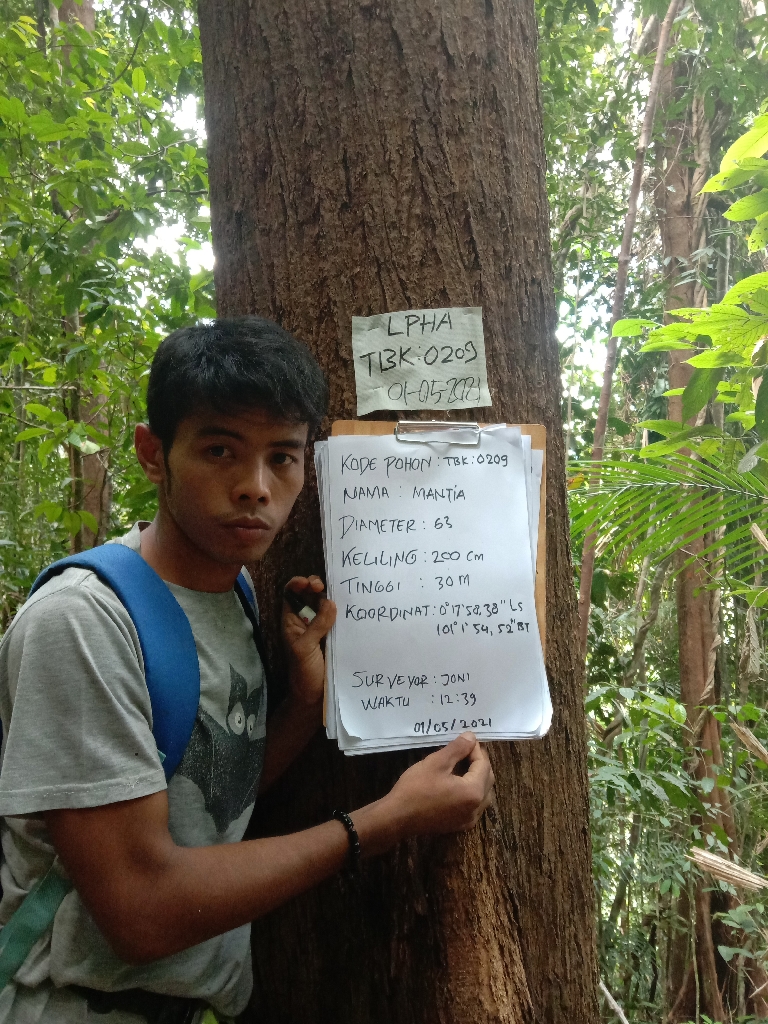 LPHA
TBK:0209
01-05-2021
KODE POHON : TBK:0209
NAMA : MANTIA
DIAMETER : 63
KELILING : 200 cm
TINGGI : 30 M
KOORDINAT : 0°17'58,38" LS
101°1'54,52" BT
SURVEYOR : JONI
WAKTU : 12:39
01/05/2021